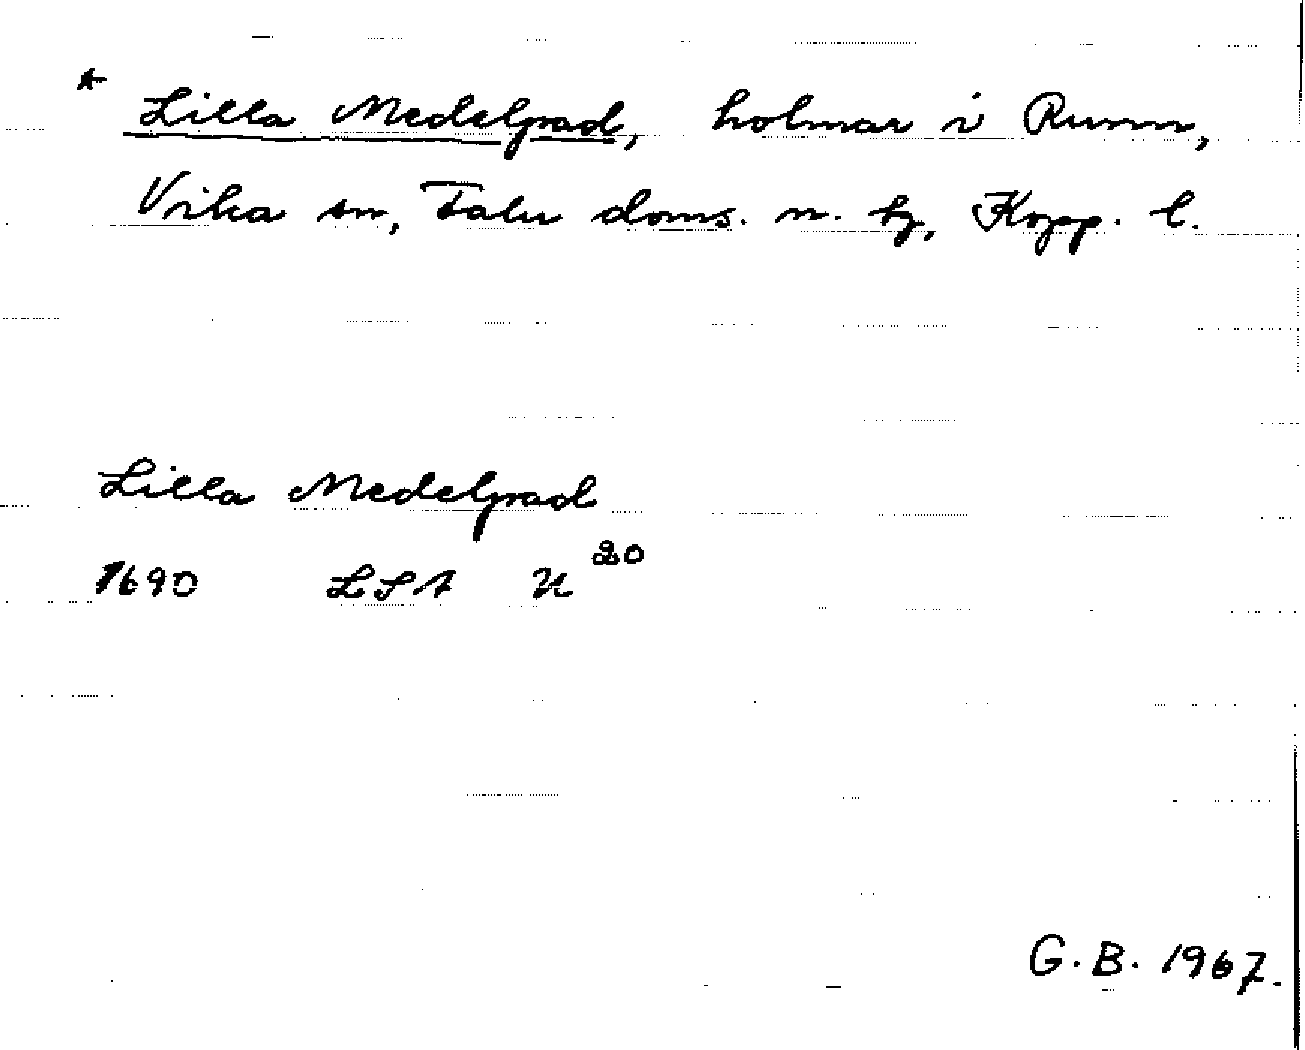 * Lilla Medelgrad, holmar i Runn,
Vika sn, Falu doms. n. tg, Kopp. l.
Lilla Medelgrad
1690 LSA U 20
G.B. 1967.